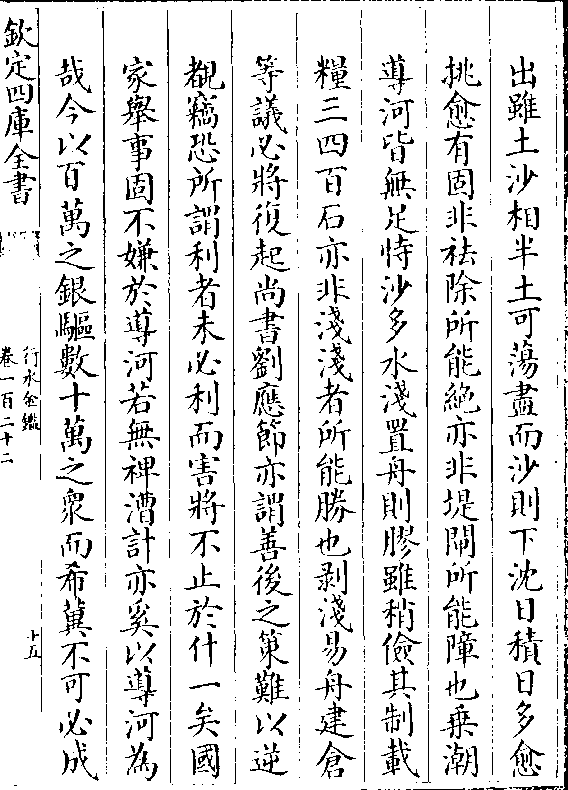 出雖土沙相半土可蕩盡而沙則下沈日積日多愈
挑愈有固非祛除所能絶亦非堤閘所能障也乗潮
導河皆無足恃沙多水淺置舟則膠雖稍儉其制載
糧三四百石亦非淺淺者所能勝也剥淺易舟建倉
等議必將復起尚書劉應節亦謂善後之策難以逆
覩竊恐所謂利者未必利而害將不止於什一矣國
家舉事固不嫌於導河若無裨漕計亦奚以導河為
哉今以百萬之銀驅數十萬之衆而希冀不可必成
欽定四庫全書
行水金鑑
卷一百二十二
十五